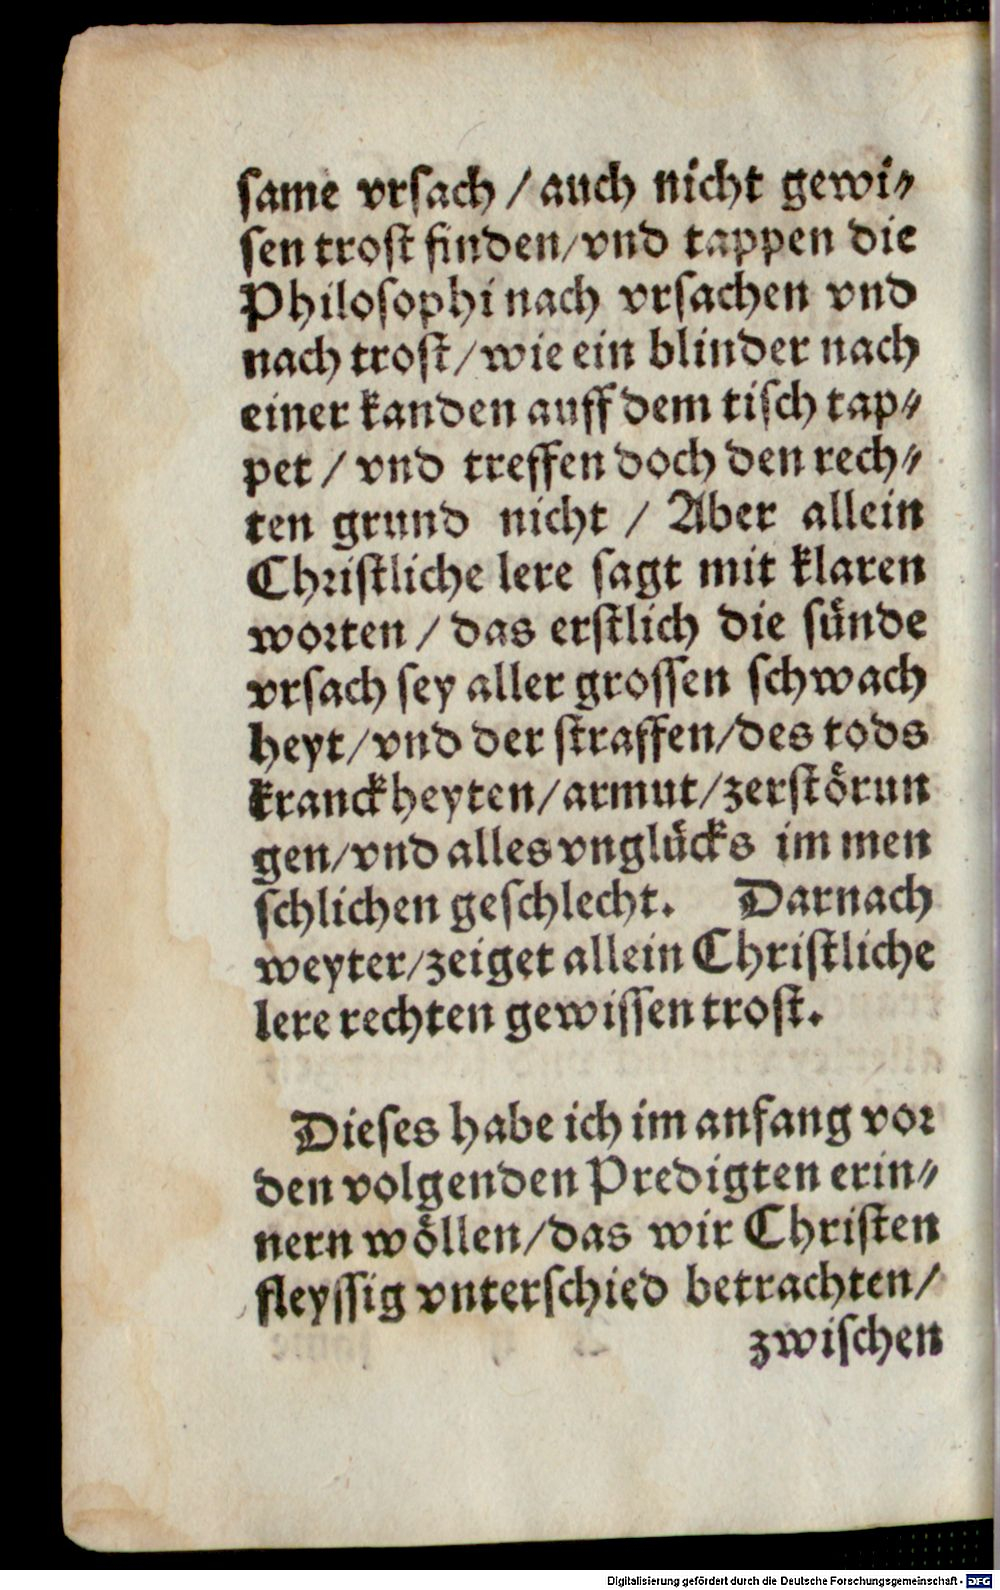 same vrsach / auch nicht gewi⸗
sen trost finden/vnd tappen die
Philosophi nach vrsachen vnd
nach trost/wie ein blinder nach
einer kanden auff dem tisch tap⸗
pet / vnd treffen doch den rech⸗
ten grund nicht / Aber allein
Christliche lere sagt mit klaren
worten / das erstlich die sünde
vrsach sey aller grossen schwach
heyt/vnd der straffen/des tods
kranckheyten/armut/zerstörun
gen/vnd alles vnglücks im men
schlichen geschlecht. Darnach
weyter/zeiget allein Christliche
lere rechten gewissen trost.
Dieses habe ich im anfang vor
den volgenden Predigten erin⸗
nern wöllen/das wir Christen
fleyssig vnterschied betrachten/
zwischen
Digitalisierung gefördert durch die Deutsche Forschungsgemeinschaft - DFG